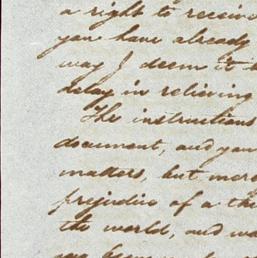 a right to receive
you have already
way I deem it
delay in relieving
The instructions
document, and you
matters, but more
prejudice of a
the world, and